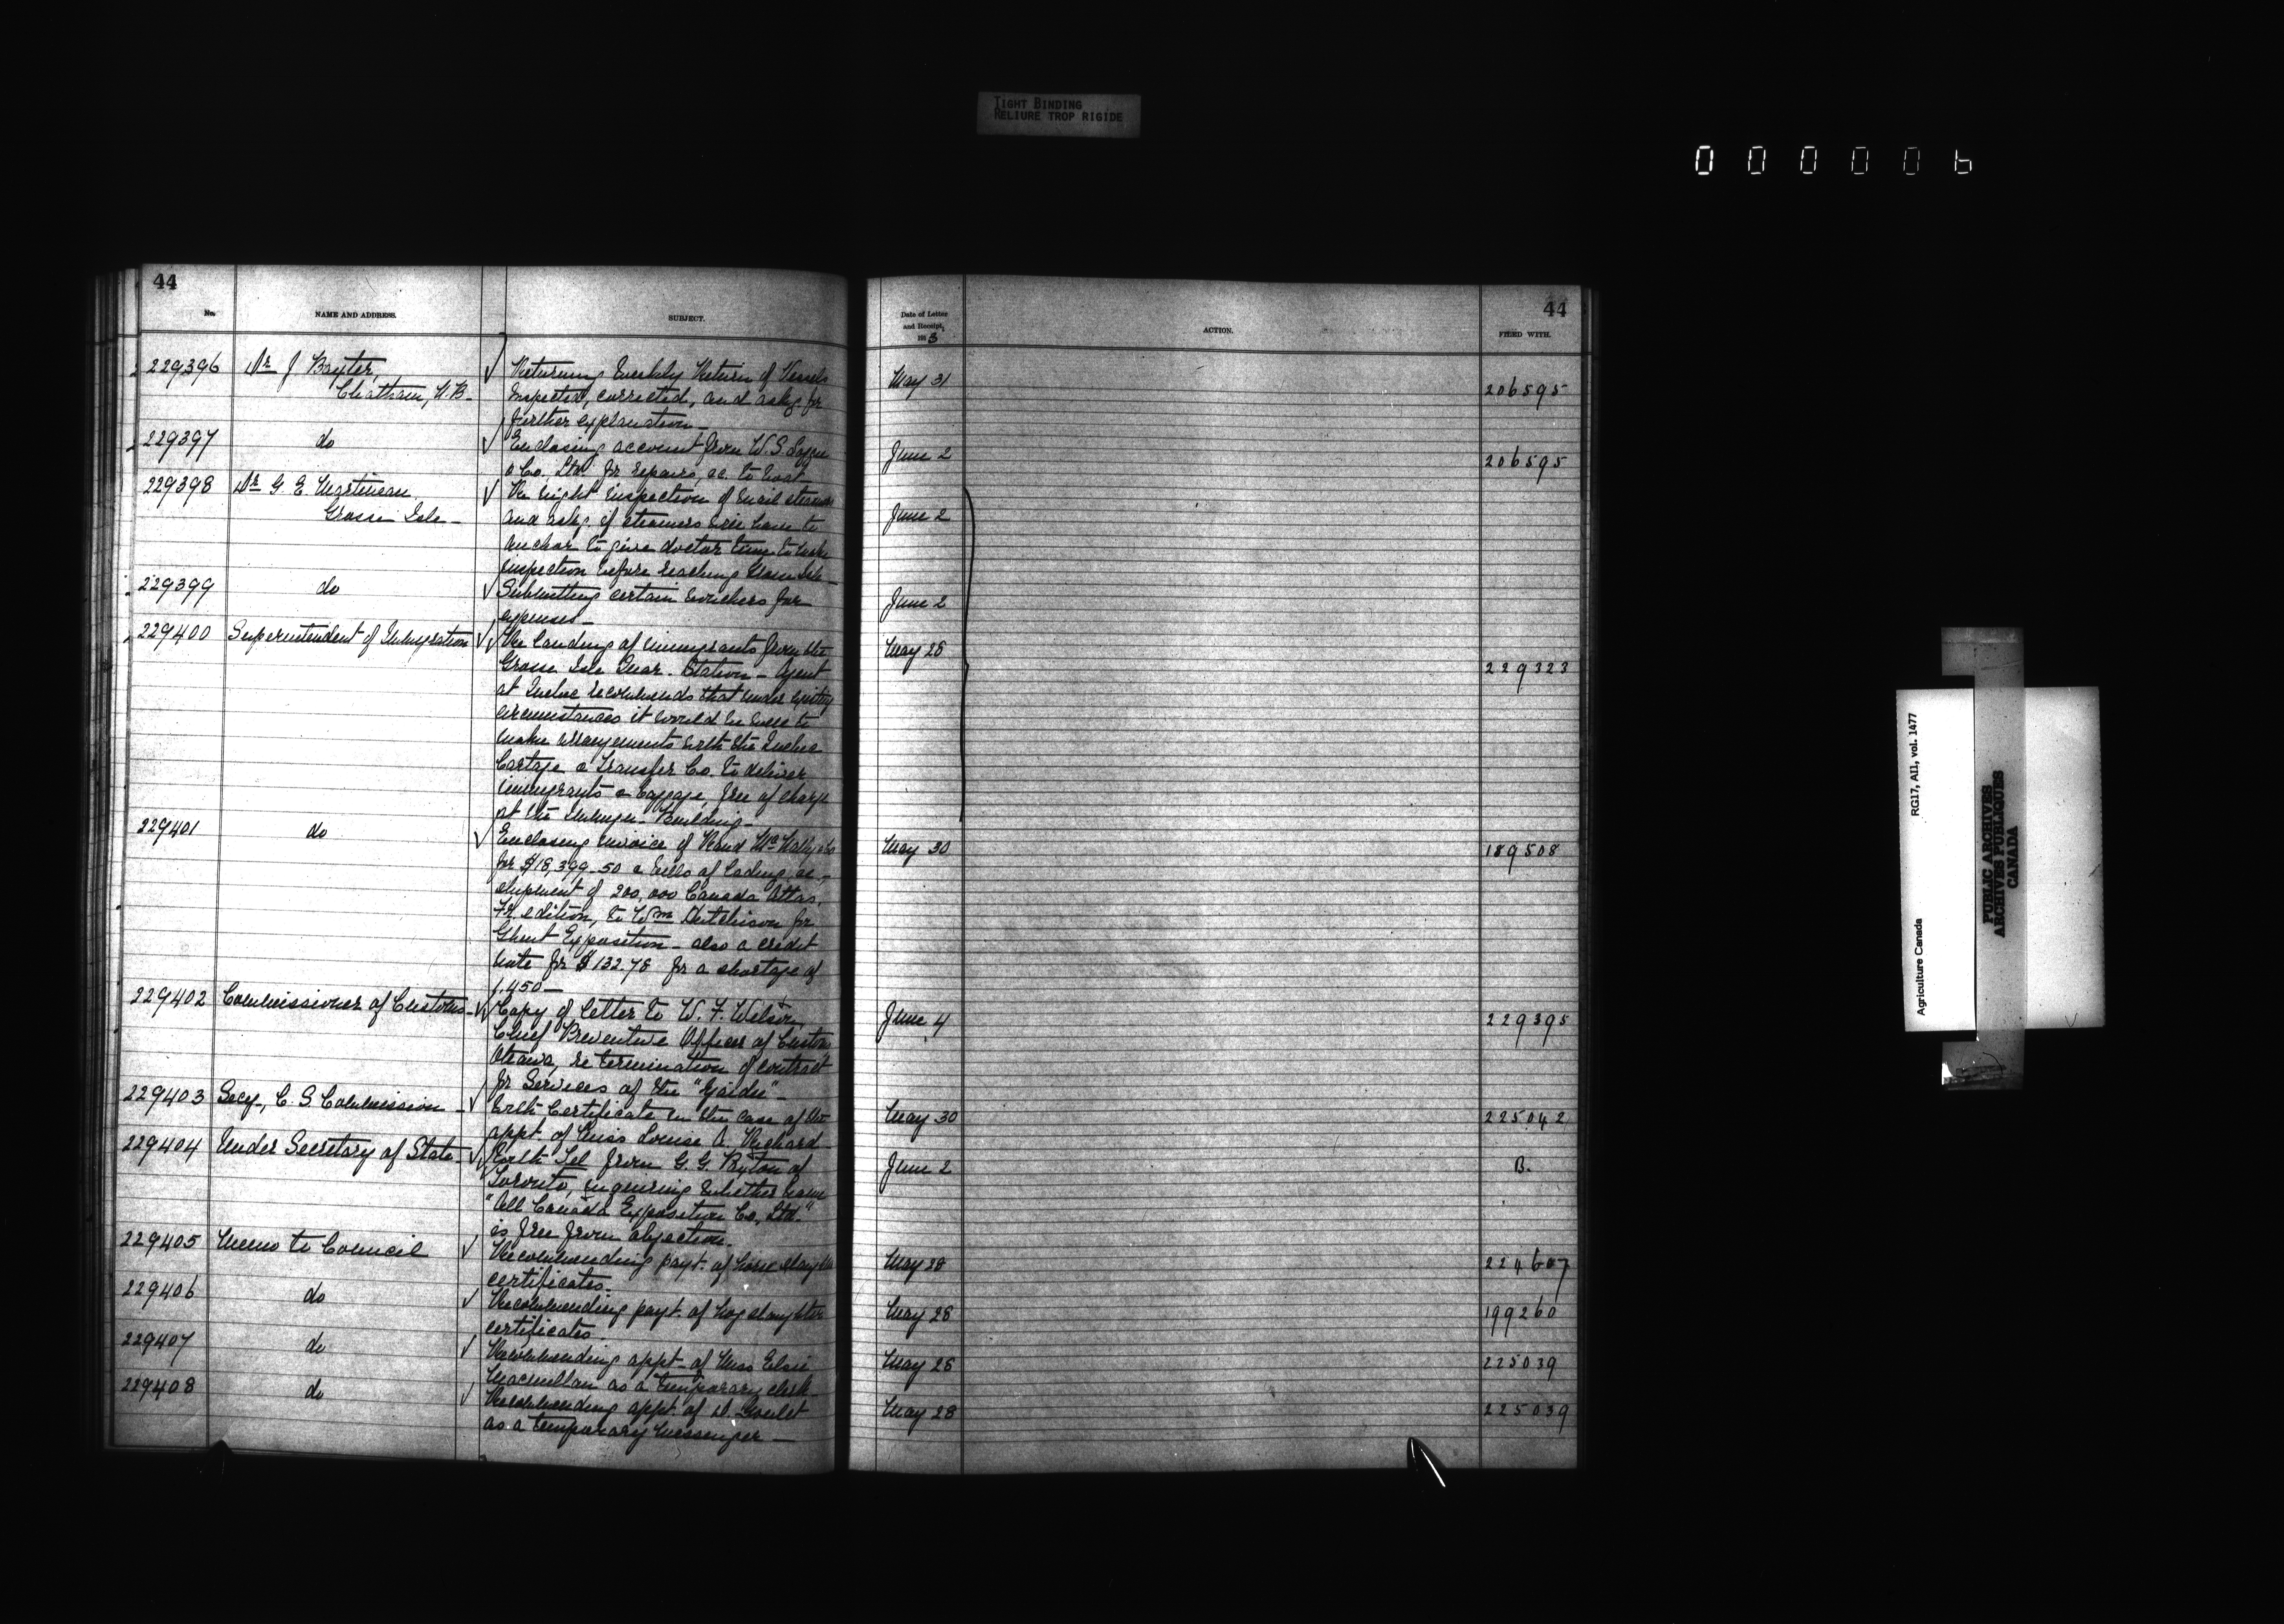 TIGHT BINDING
RELIURE TROP RIGIDE
000006
44
No.
NAME AND ADDRESS.
SUBJECT.
229396 Dr J Baxter,
Chatham, N.B.
Returning Weekly Return of Vessels
Inspected, corrected, and asks for
further explanation
229397 do
Enclosing account from W. S. Loggie
& Co. Ltd for repairs, &c. to boat
229398 Dr G E Martineau
Grosse Isle
Re night inspection of mail steamers
and asks if steamers will have to
anchor to give doctor time to make
inspection before reaching Grosse Isle
229399 do
Submitting certain vouchers for
expenses
229400 Superintendent of Immigration
Re landing of immigrants from the
Grosse Isle Quar. Station - Agent
at Quebec recommends that under existing
circumstances it would be well to
make arrangements with the Quebec
Cartage & Transfer Co. to deliver
immigrants & baggage, free of charge
at the Immgn. Building
229401 do
Enclosing invoice of Rand McNally
for $18,399.50 & bills of lading, re
shipment of 200,000 Canada Atlas,
Fr. edition, to Wm Hutchison for
Ghent Exposition - also a credit
note for $132.78 for a shortage of
1,450
229402 Commissioner of Customs
Copy of letter to W. F. Wilson
Chief Preventive Officer of Customs
Ottawa, re termination of contract
for Services of the
229403 Secy., C. S Commission
With Certificate in the case of the
appt. of Miss Louise A. Richard
229404 Under Secretary of State
With Tel from G. G. of
Toronto, enquiring whether name
"All Canada Exposition Co., Ltd."
is free from objection.
229405 Memo to Council
Recommending payt. of horse slaughter
certificates.
229406 do
Recommending payt. of hog slaughter
certificates
229407 do
Recommending appt. of Miss Elsie
Macmillan as a temporary clerk
229408 do
Recommending appt. of D. Goulet
as a temporary messenger
44
Date of Letter
and Receipt,
191 3
ACTION.
FILED WITH.
May 31 206595
June 2 206595
June 2
June 2
May 28 229323
May 30 189508
June 4 229395
May 30 225042
June 2 B.
May 28 224607
May 28 199260
May 28 225039
May 28 225039
Agriculture Canada RG17, AII, vol. 1477
PUBLIC ARCHIVES
ARCHIVES PUBLIQUES
CANADA